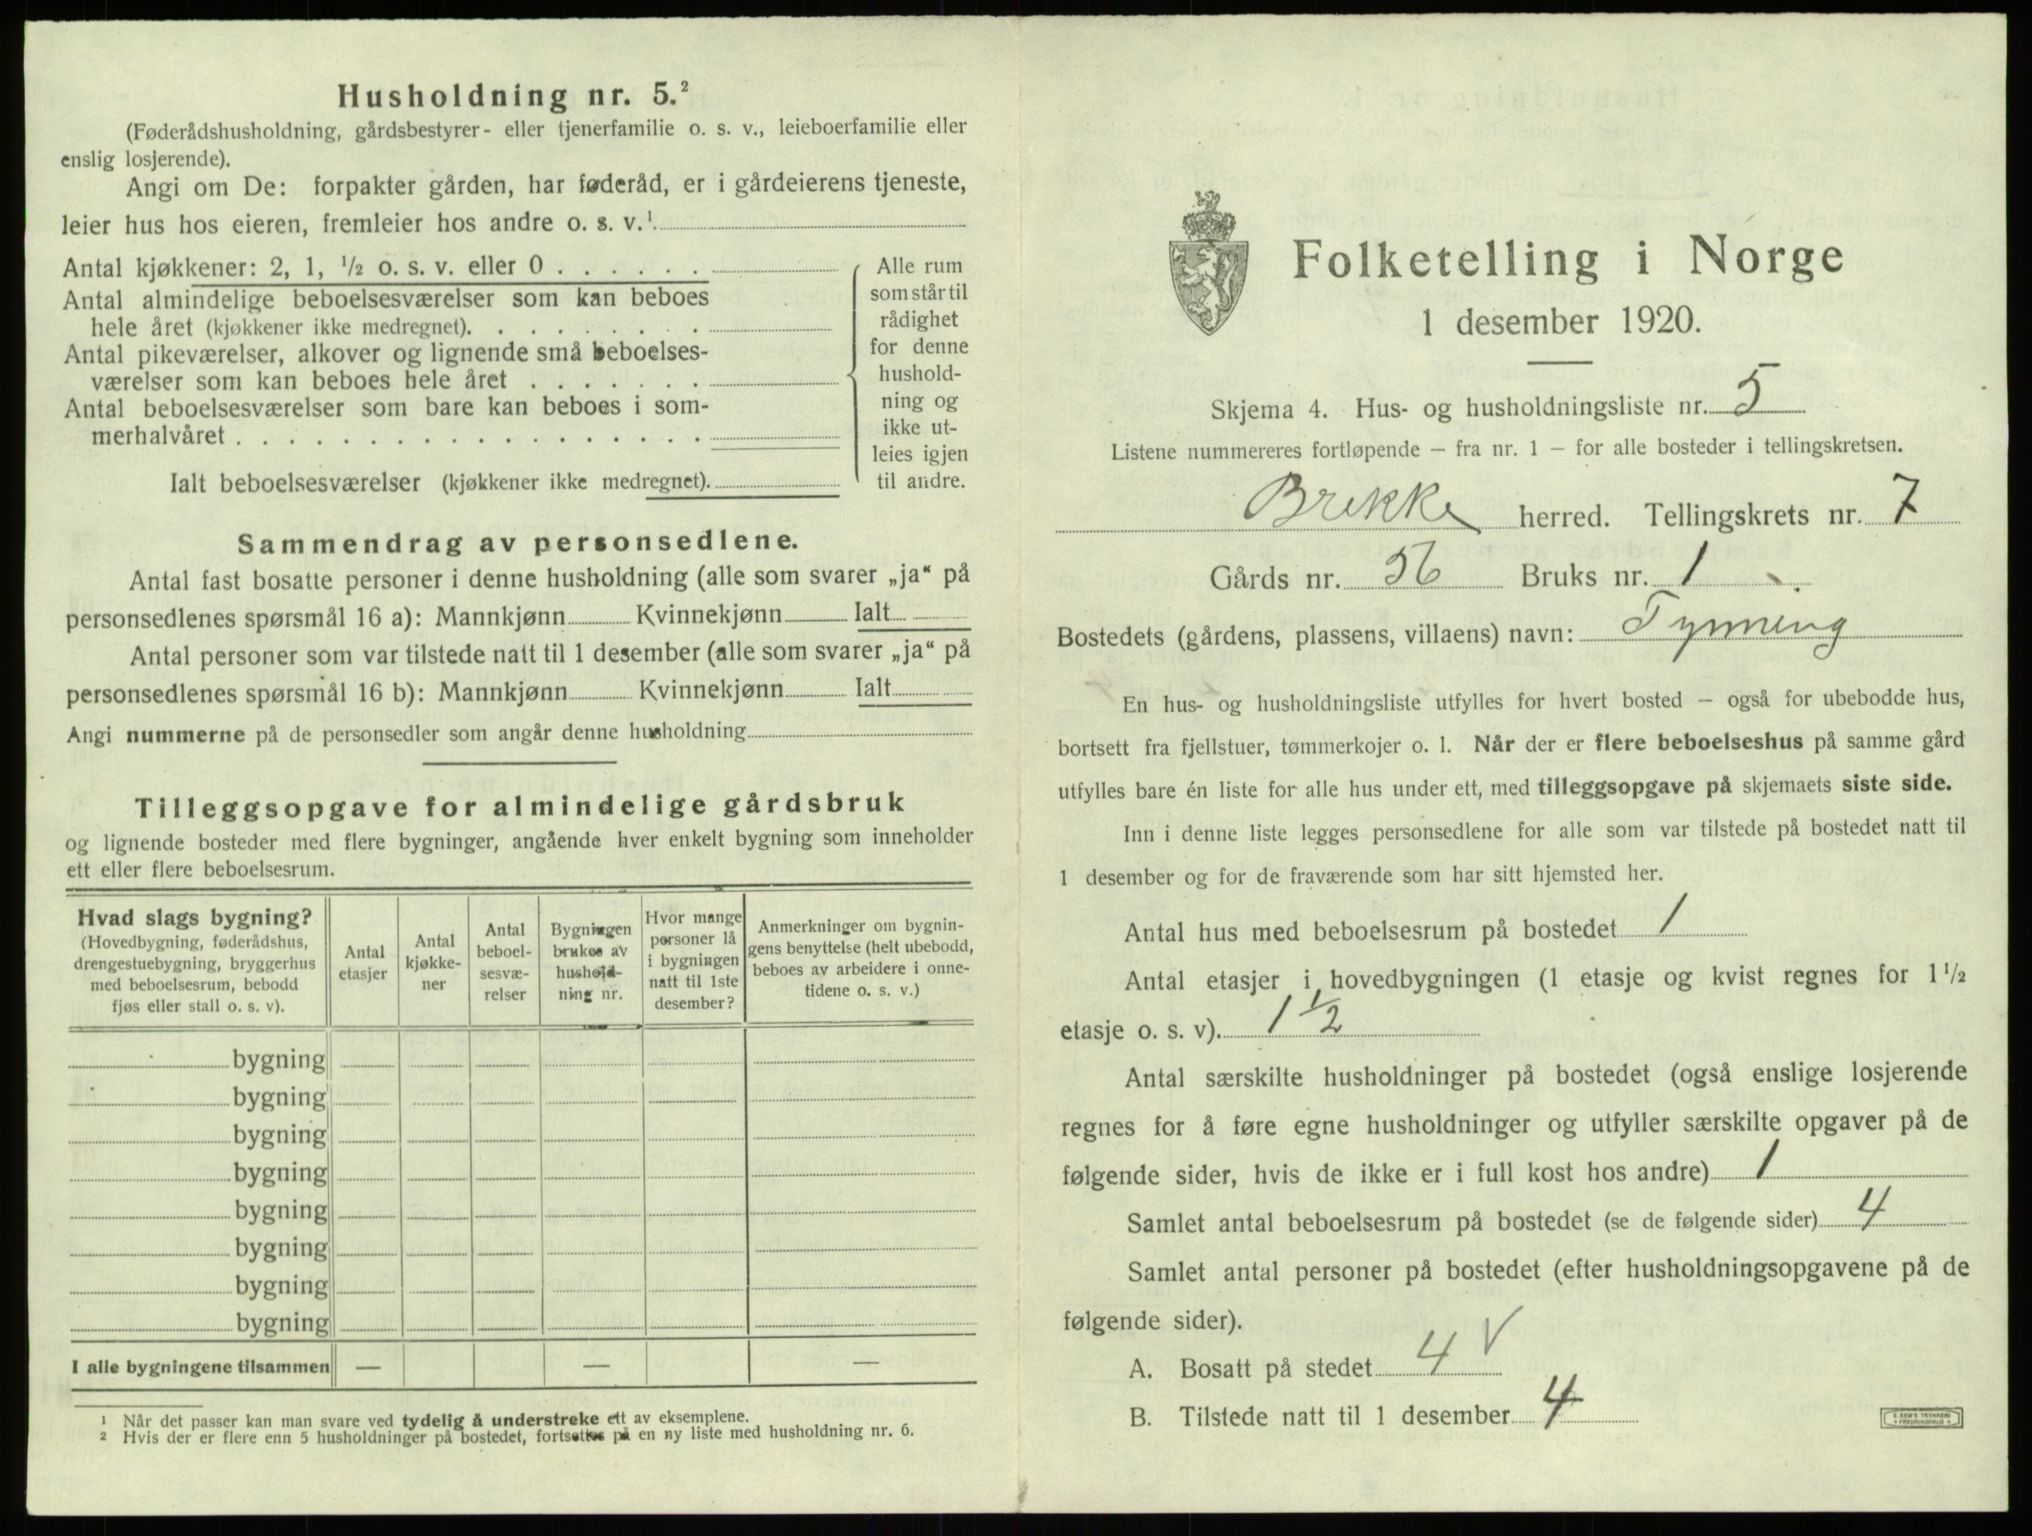 Husholdning nr. 5.²
(Føderådshusholdning, gårdsbestyrer- eller tjenerfamilie o. s. v., leieboerfamilie eller
enslig losjerende).
Angi om De: forpakter gården, har føderåd, er i gårdeierens tjeneste,
leier hus hos eieren, fremleier hos andre o. s. v.¹
Antal kjøkkener: 2, 1, ½ o. s. v. eller 0 . . . . . .
Antal almindelige beboelsesværelser som kan beboes
hele året (kjøkkener ikke medregnet). . . . . . . . .
Antal pikeværelser, alkover og lignende små beboelses-
værelser som kan beboes hele året . . . . . . .
Antal beboelsesværelser som bare kan beboes i som-
merhalvåret . . . . . . . . . . . . . . . . . .
Ialt beboelsesværelser (kjøkkener ikke medregnet).
Alle rum
som står til
rådighet
for denne
hushold-
ning og
ikke ut-
leies igjen
til andre.
Sammendrag av personsedlene.
Antal fast bosatte personer i denne husholdning (alle som svarer „ja“ på
personsedlenes spørsmål 16 a): Mannkjønn Kvinnekjønn Ialt
Antal personer som var tilstede natt til 1 desember (alle som svarer „ja“ på
personsedlenes spørsmål 16 b): Mannkjønn Kvinnekjønn Ialt
Angi nummerne på de personsedler som angår denne husholdning
Tilleggsopgave for almindelige gårdsbruk
og lignende bosteder med flere bygninger, angående hver enkelt bygning som inneholder
ett eller flere beboelsesrum.
Hvad slags bygning?
(Hovedbygning, føderådshus,
drengestuebygning, bryggerhus
med beboelsesrum, bebodd
fjøs eller stall o. s. v).
Antal
etasjer
Antal
kjøkke-
ner
Antal
beboel-
sesvæ-
relser
Bygningen
brukes av
hushold-
ning nr.
Hvor mange
personer lå
i bygningen
natt til 1ste
desember?
Anmerkninger om bygnin-
gens benyttelse (helt ubebodd,
beboes av arbeidere i onne-
tidene o. s. v.)
bygning
bygning
bygning
bygning
bygning
bygning
bygning
bygning
I alle bygningene tilsammen — — —
¹ Når det passer kan man svare ved tydelig å understreke ett av eksemplene.
² Hvis der er flere enn 5 husholdninger på bostedet, fortsettes på en ny liste med husholdning nr. 6.
Folketelling i Norge
1 desember 1920.
Skjema 4. Hus- og husholdningsliste nr. 5
Listene nummereres fortløpende – fra nr. 1 – for alle bosteder i tellingskretsen.
Brekke herred. Tellingskrets nr. 7
Gårds nr. 56 Bruks nr. 1
Bostedets (gårdens, plassens, villaens) navn: Tynning
En hus- og husholdningsliste utfylles for hvert bosted – også for ubebodde hus,
bortsett fra fjellstuer, tømmerkojer o. l. Når der er flere beboelseshus på samme gård
utfylles bare én liste for alle hus under ett, med tilleggsopgave på skjemaets siste side.
Inn i denne liste legges personsedlene for alle som var tilstede på bostedet natt til
1 desember og for de fraværende som har sitt hjemsted her.
Antal hus med beboelsesrum på bostedet 1
Antal etasjer i hovedbygningen (1 etasje og kvist regnes for 1 ½
etasje o. s. v). 1 ½
Antal særskilte husholdninger på bostedet (også enslige losjerende
regnes for å føre egne husholdninger og utfyller særskilte opgaver på de
følgende sider, hvis de ikke er i full kost hos andre) 1
Samlet antal beboelsesrum på bostedet (se de følgende sider) 4
Samlet antal personer på bostedet (efter husholdningsopgavene på de
følgende sider).
A. Bosatt på stedet 4 V
B. Tilstede natt til 1 desember 4
E. SEM'S TRYKKERI
FREDRIKSHALD